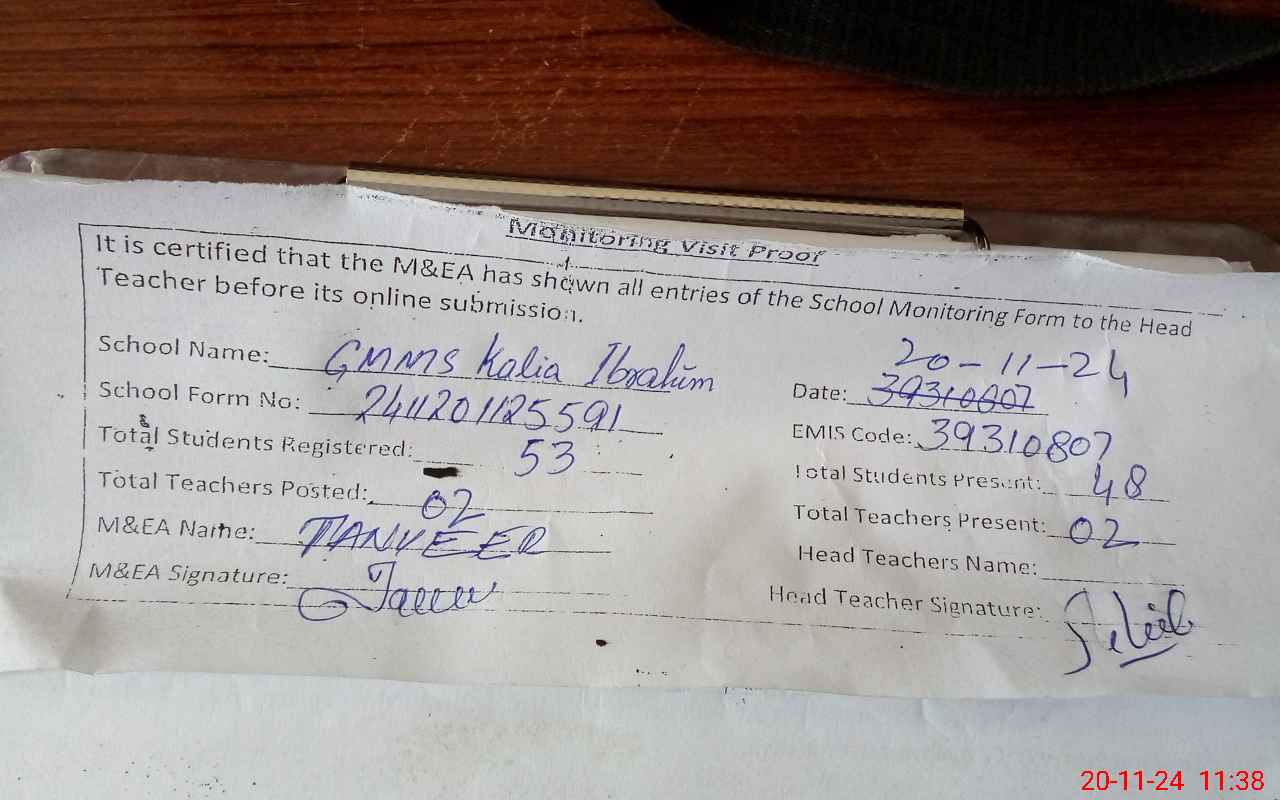 Monitoring Visit Proof
It is certified that the M&EA has shown all entries of the School Monitoring Form to the Head
Teacher before its online submission.
School Name: GMMS Kalia Ibrahim
20-11-24
Date: 39310807
School Form No: 2411201125591
EMIS Code: 39310807
Total Students Registered: 53
Total Students Present: 48
Total Teachers Posted: 02
Total Teachers Present: 02
M&EA Name: TANVEER
Head Teachers Name:
M&EA Signature:
Head Teacher Signature:
20-11-24 11:38